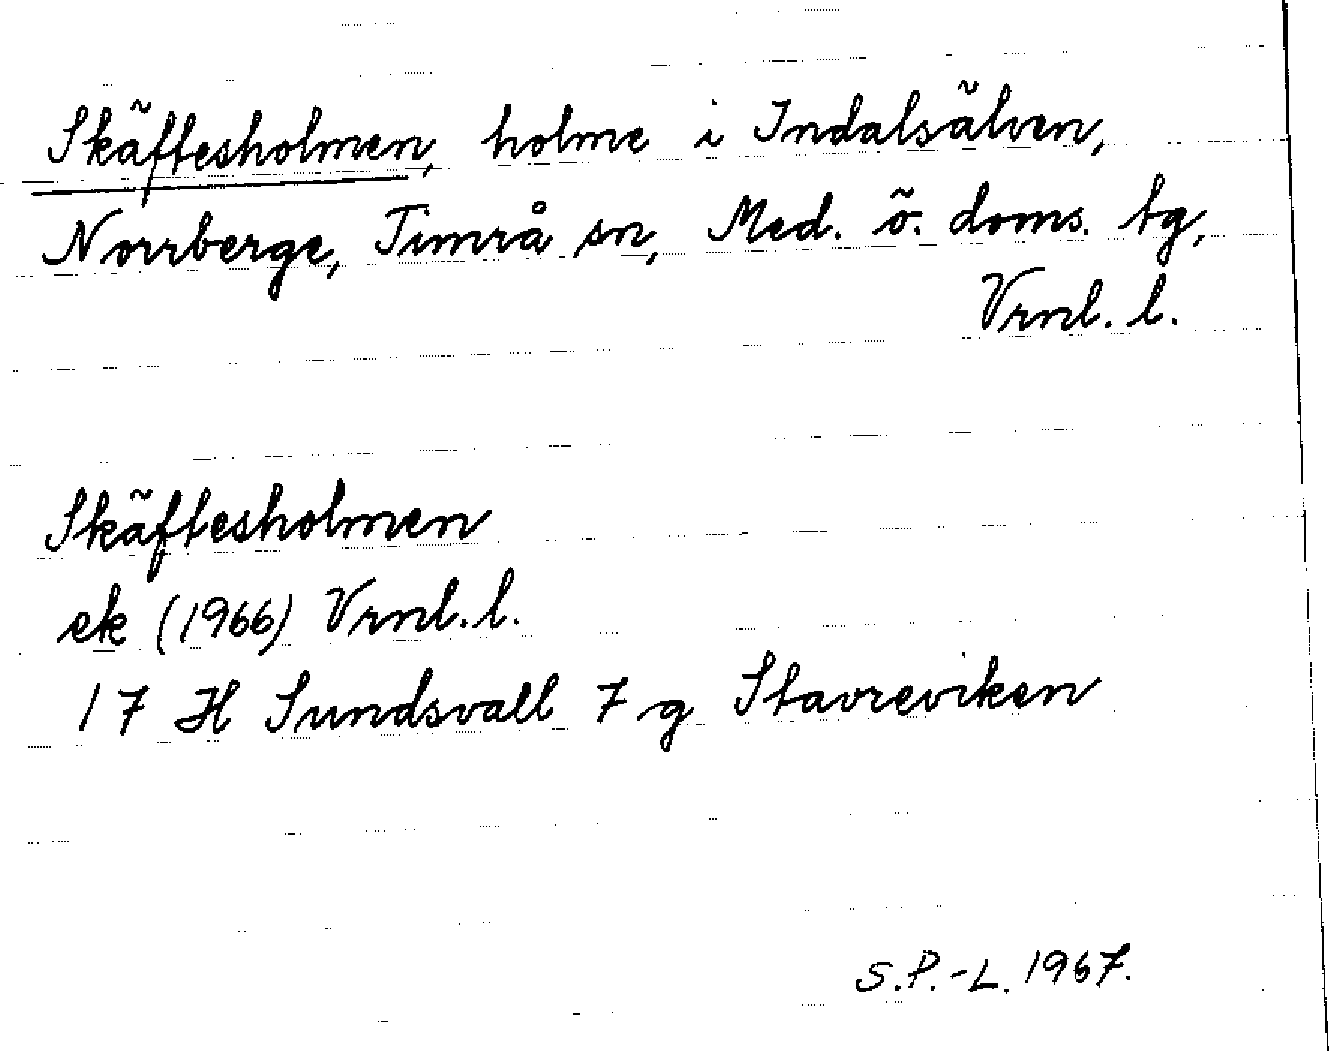 Skäftesholmen, holme i Indalsälven,
Norrberge, Timrå sn, Med. ö. doms. tg,
Vrnl. l.
Skäftesholmen
ek (1966) Vrnl. l.
17 H Sundsvall 7 g Stavreviken
S.P.-L. 1967.